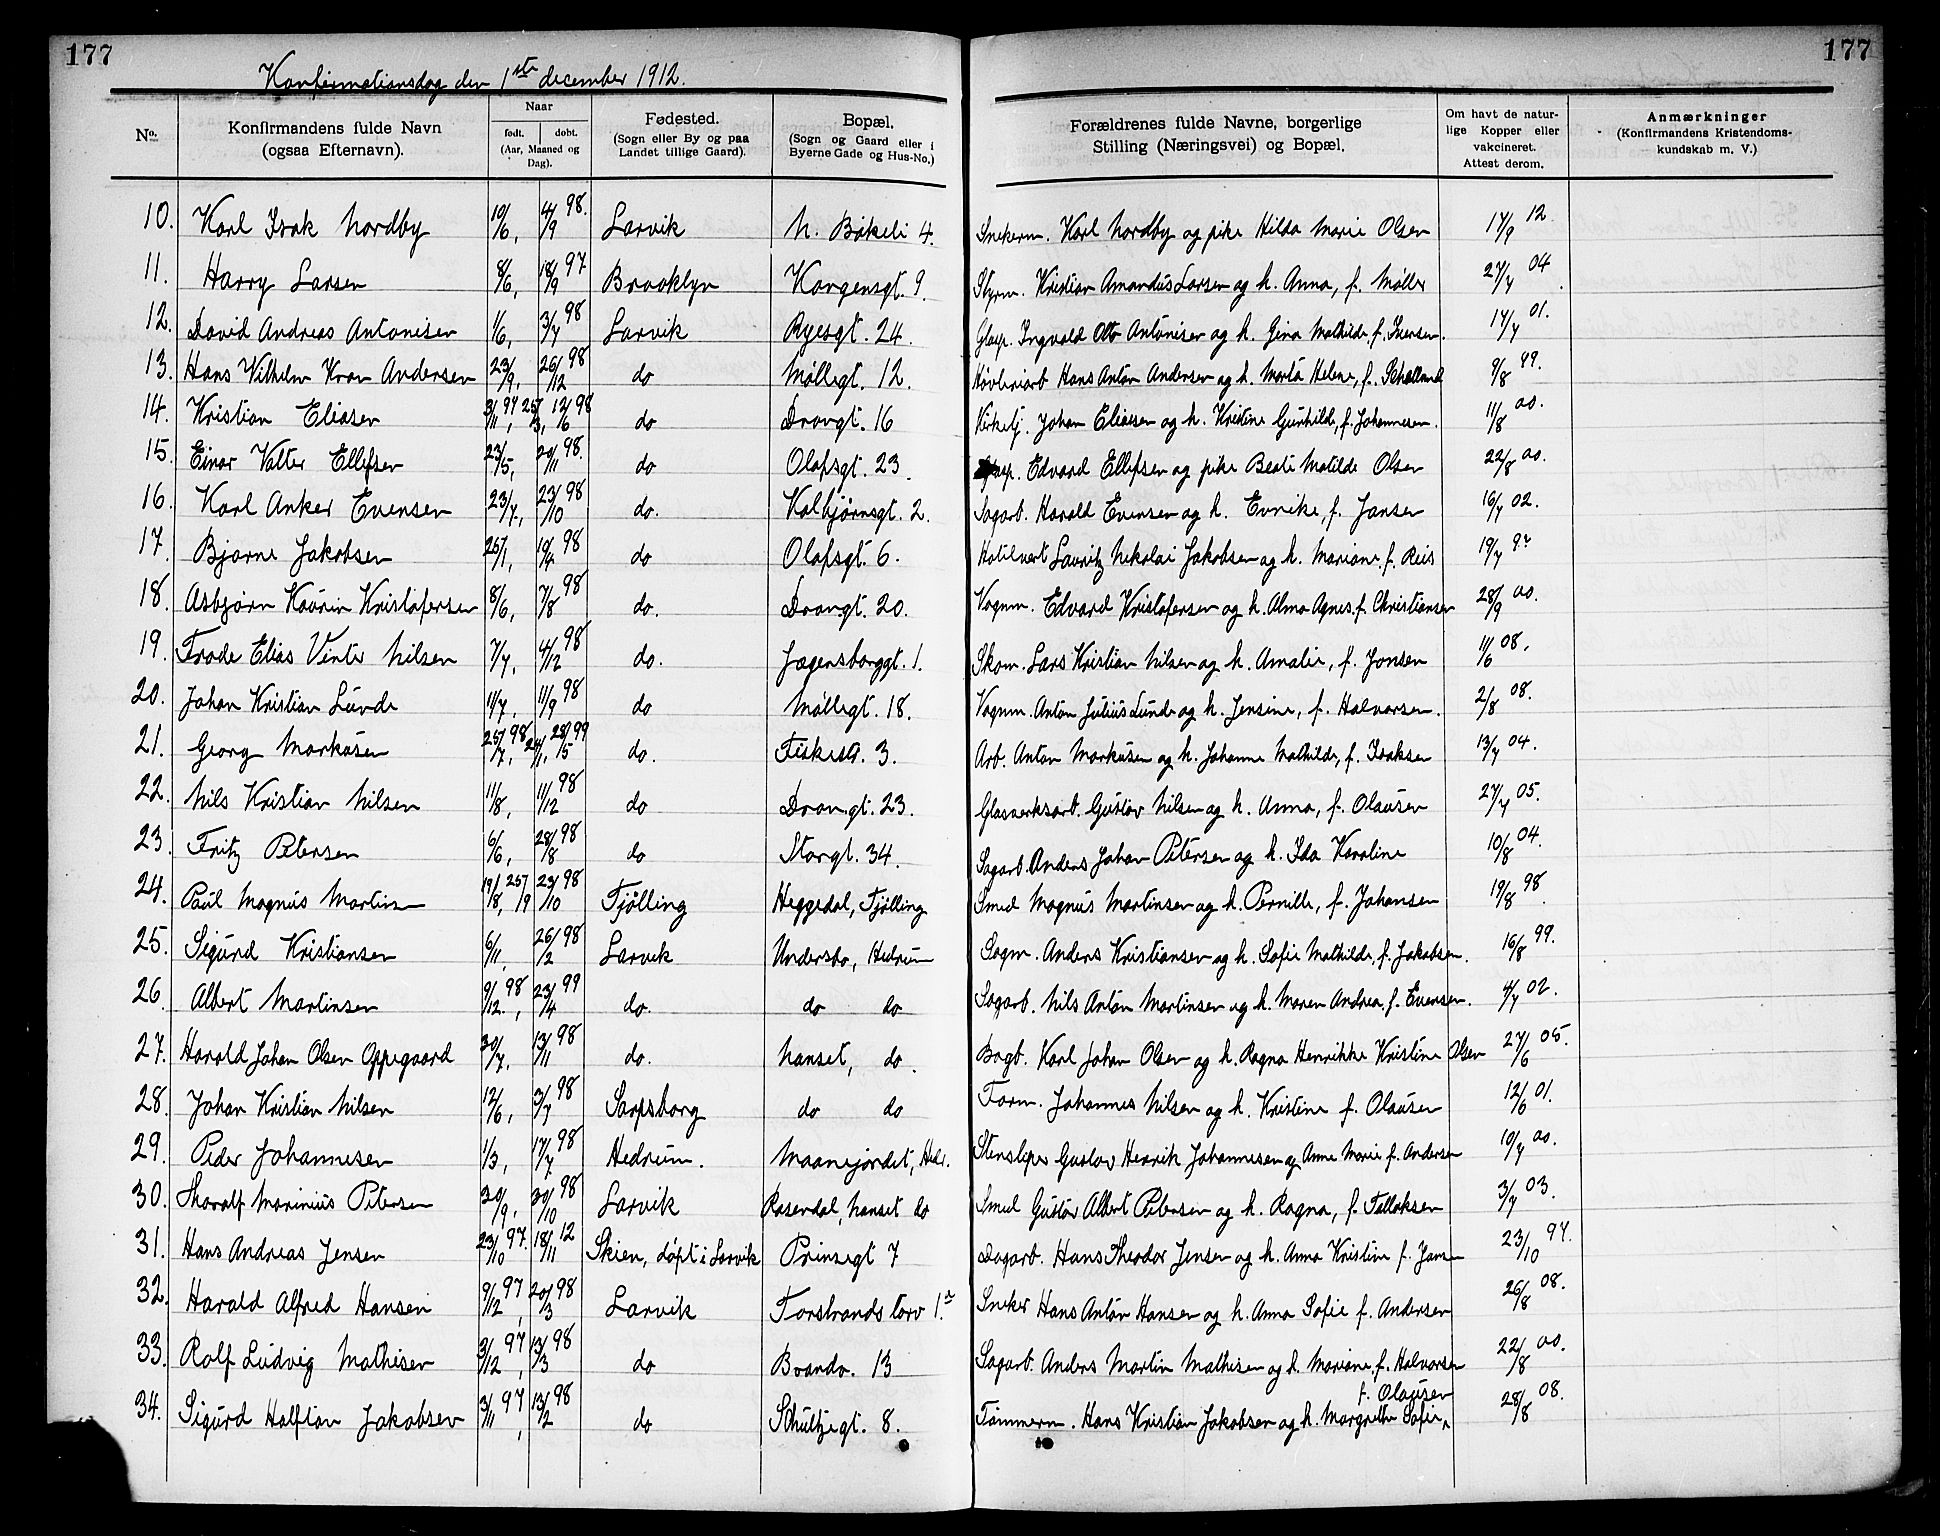 177
177
Konfirmationsdag den 1ste december 1912.
No.
Konfirmandens fulde Navn (ogsaa Efternavn).
Naar
født. dobt.
(Aar, Maaned og Dag).
Fødested.
(Sogn eller By og paa Landet tillige Gaard).
Bopæl.
(Sogn og Gaard eller i Byerne Gade og Hus-No.)
Forældrenes fulde Navne, borgerlige Stilling (Næringsvei) og Bopæl.
Om havt de naturlige Kopper eller vakcineret. Attest derom.
Anmærkninger
(Konfirmandens Kristendomskundskab m. V.)
10. Karl Isak Nordby 10/6, 4/9 98. Larvik N. Bökeli 4. Snekerm. Karl Nordby og pike Hilda Marie Olsen 17/9 12.
11. Harry Larsen 8/6, 18/9 97 Brooklyn Kongensgt. 9. Styrm. Kristian Amandus Larsen og h. Anna, f. Møller 27/7 04.
12. David Andreas Antonisen 1/6, 3/7 98 Larvik Ryesgt. 24. Ingvald Otto Antonisen og h. Gina Mathilde, f. Iversen. 17/7 01.
13. Hans Vilhelm Kran Andersen 23/9, 26/12 98 do Møllegt. 12. Høvleriarb Hans Anton Andersen og h. Marta Helene, f. 9/8 99.
14. Kristian Eliasen 3/11 97, 25/3, 12/6 98 do Drangt. 16 Kirketj. Johan Eliasen og h. Kristine Gunhilde, f. Johannesen. 11/8 00.
15. Einar Valter Ellefsen 23/5, 20/11 98. do Olafsgt. 23. Edvard Ellefsen og pike Beate Matilde Olsen 22/8 00.
16. Karl Anker Evensen 23/7, 23/10 98 do. Kolbjørnsgt. 2. Sagarb. Harald Evensen og h. Evrike, f. Jansen 16/7 02.
17. Bjarne Jakobsen 25/1, 10/4 98 do Olafsgt. 6. Hotelvert Lauritz Nikolai Jakobsen og h. Mariane, f. Reis 19/7 9
18. Asbjørn Kaurin Kristofersen 8/6, 7/8 98 do. Drangt. 20. Vognm. Edvard Kristofersen og h. Alma Agnes, f. Christiansen 28/9 00.
19. Frode Elias Vinter Nilsen 7/7, 4/12 98 do. Jegersborggt. 1. Skom. Lars Kristian Nilsen og h. Amalie, f. Jonsen 11/6 08.
20. Johan Kristian Lunde 11/7, 11/9 98 do Møllegt. 18. Vognm. Anton Julius Lunde og h. Jensine, f. Halvorsen. 2/8 08.
21. Georg Markusen 25/7 98, 24/1, 28/5 99 do. Fiskest. 3. Arb. Anton Markusen og h. Johanne Mathilde, f. Isaksen 13/7 04.
22. Nils Kristian Nilsen 11/8, 11/12 98 do Drangt. 23. Glasverksarb. Gustav Nilsen og h. Anna, f. Olausen 27/7 05.
23. Fritz Petersen 6/6, 28/8 98 do Storgt. 34. Sagarb. Anders Johan Petersen og h. Ida Karoline 10/8 04.
24. Paul Magnus Martinsen 19/8, 25/9 23/10 98 Tjølling Heggedal, Tjølling Smed Magnus Martinsen og h. Pernille, f. Johansen 19/8 98.
25. Sigurd Kristiansen 6/11, 26/2 98 Larvik Undersbo, Hedrum Sagm. Anders Kristiansen og h. Sofie Mathilde, f. Jakobsen. 16/8 99.
26. Albert Martinsen 9/12 98, 23/4 99 do. do do Sagarb. Nils Anton Martinsen og h. Maren Andrea, f. Evensen. 4/7 02.
27. Harald Johan Olsen Oppegaard 30/7, 13/11 98 do. Nanset, do. Bogb. Karl Johan Olsen og h. Ragna Henrikke Kristine Olsen 27/6 05.
28. Johan Kristian Nilsen 12/6, 3/7 98 Sarpsborg do do Form. Johannes Nilsen og h. Kristine f. Olausen 12/6 01.
29. Peder Johannesen 1/3, 17/7 98 Hedrum. Maanejordet, Hedr. Stensliper Gustav Henrik Johannesen og Anne Marie f. Andersen 10/7 00.
30. Thoralf Marinius Petersen 30/9, 30/10 98 Larvik Rosendal, Nanset do Smed Gustav Albert Petersen og h. Ragna, f. Fallaksen 3/7 03.
31. Hans Andreas Jensen 23/10 97. 18/11 12 Skien, døpt i Larvik Prinsegt 7 Dagarb. Hans Theodor Jensen og h. Anna Kristine f. Jansen 23/10 97.
32. Harald Alfred Hansen 9/12 97, 20/3 98 Larvik Torstrands torv 1.a Sneker Hans Anton Hansen og h. Anna Sofie f. Andersen 26/8 08.
33. Rolf Ludvig Mathisen 3/12 97, 13/3 98 do Brandv. 13 Sagarb. Anders Martin Mathisen og h. Mariane, f. Halvorsen 22/8 00.
34. Sigurd Halftan Jakobsen 3/11 97, 13/2 98 do Schultzegt. 8. Tømmerm. Hans Kristian Jakobsen og h. Margrethe Sofie, f. Olausen 28/8 08.